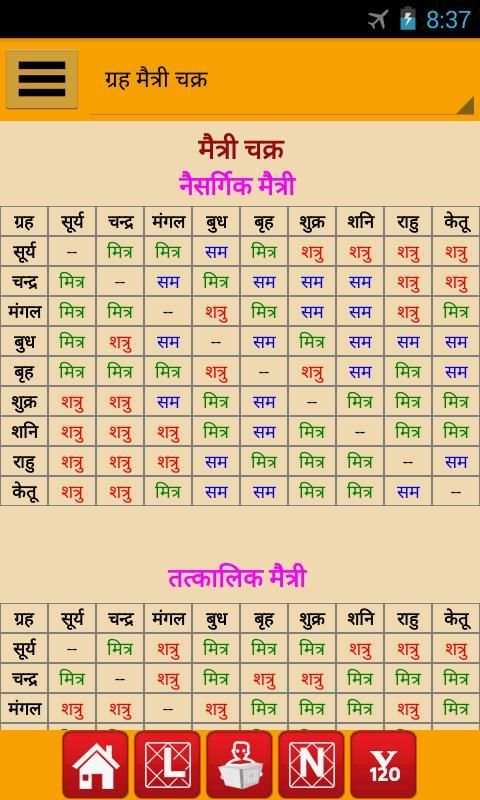 8:37
ग्रह मैत्री चक्र
मैत्री चक्र
नैसर्गिक मैत्री
ग्रह सूर्य चन्द्र मंगल बुध बृह शुक्र शनि राहु केतू
सूर्य -- मित्र मित्र सम मित्र शत्रु शत्रु शत्रु शत्रु
चन्द्र मित्र -- सम मित्र सम सम सम शत्रु शत्रु
मंगल मित्र मित्र -- शत्रु मित्र सम सम शत्रु मित्र
बुध मित्र शत्रु सम -- सम मित्र सम सम सम
बृह मित्र मित्र मित्र शत्रु -- शत्रु सम मित्र सम
शुक्र शत्रु शत्रु सम मित्र सम -- मित्र मित्र मित्र
शनि शत्रु शत्रु शत्रु मित्र सम मित्र -- मित्र मित्र
राहु शत्रु शत्रु शत्रु सम मित्र मित्र मित्र -- सम
केतू शत्रु शत्रु मित्र सम सम मित्र मित्र सम --
तत्कालिक मैत्री
ग्रह सूर्य चन्द्र मंगल बुध बृह शुक्र शनि राहु केतू
सूर्य -- मित्र शत्रु मित्र मित्र मित्र शत्रु शत्रु शत्रु
चन्द्र मित्र -- शत्रु मित्र शत्रु शत्रु मित्र मित्र मित्र
मंगल शत्रु शत्रु -- शत्रु मित्र मित्र मित्र शत्रु मित्र
L N Y 120